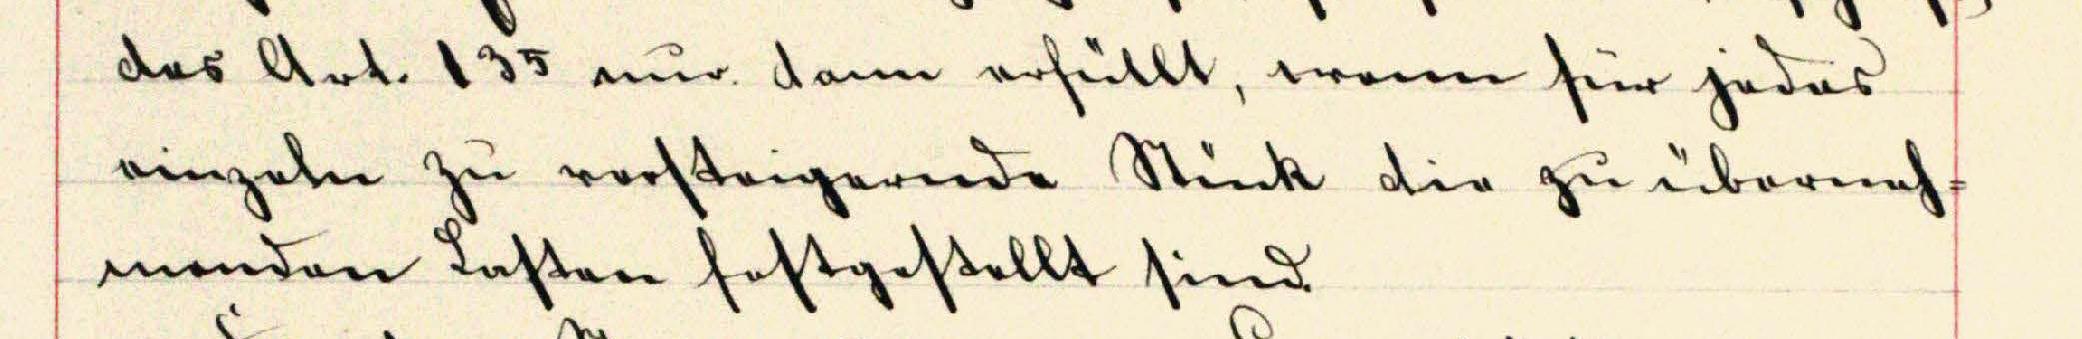 des Art. 135 nur dann erfüllt, wenn für jedes
einzeln zu versteigernde Stück die zu überneh=
menden Lasten festgestellt sind.